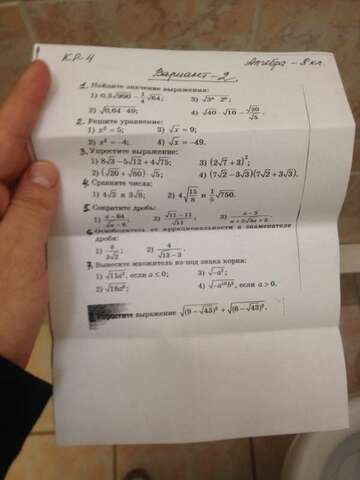 КР-4 Алгебра - 8 кл.
Вариант-2.
1. Найдите значение выражения:
1) 0,5√900 − 1/4 √64; 3) √(3⁴ · 2⁶);
2) √(0,64 · 49); 4) √40 · √10 − √20/√5.
2. Решите уравнение:
1) x² = 5; 3) √x = 9;
2) x² = −4; 4) √x = −49.
3. Упростите выражение:
1) 8√3 − 5√12 + 4√75; 3) (2√7 + 3)²;
2) (√20 + √80) · √5; 4) (7√2 − 3√3)(7√2 + 3√3).
4. Сравните числа:
1) 4√3 и 3√6; 2) 4√(15/8) и 1/5 √750.
5. Сократите дробь:
1) 2) (√11 − 11)/√11; 3)
6. Освободитесь от иррациональности в знаменателе
дроби:
1) 2) 4/(√13 − 3).
7. Вынесите множитель из-под знака корня:
1) √(15a²), если a ≤ 0; 3) √(−a⁷);
2) 4) если a > 0.
Упростите выражение √((9 − √43)²) + √((6 − √43)²).